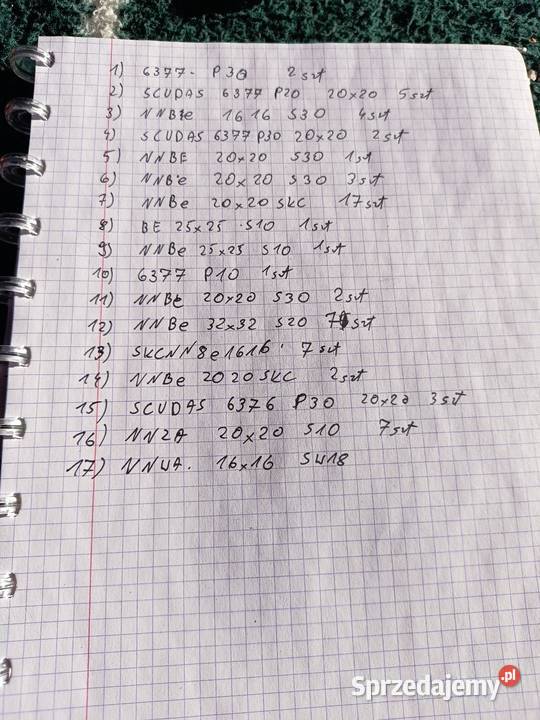 1) 6377. P30 2szt
2) SCUDAS 6377 P20 20x20 5szt
3) NNBe 16 16 S30 4szt
4) SCUDAS 6377 P30 20x20 2szt
5) NNBE 20x20 S30 1szt
6) NNBe 20x20 S30 3szt
7) NNBe 20x20 SKC 17szt
8) BE 25x25 S10 1szt
9) NNBe 25x25 S10 1szt
10) 6377 P10 1szt
11) NNBe 20x20 S30 2szt
12) NNBe 32x32 S20 szt
13) SKCNN8e1616. 7szt
14) NNBe 2020 SKC 2szt
15) SCUDAS 6376 P30 20x20 3szt
16) NNZA 20x20 S10 7szt
17) NNUA. 16x16
Sprzedajemy.pl